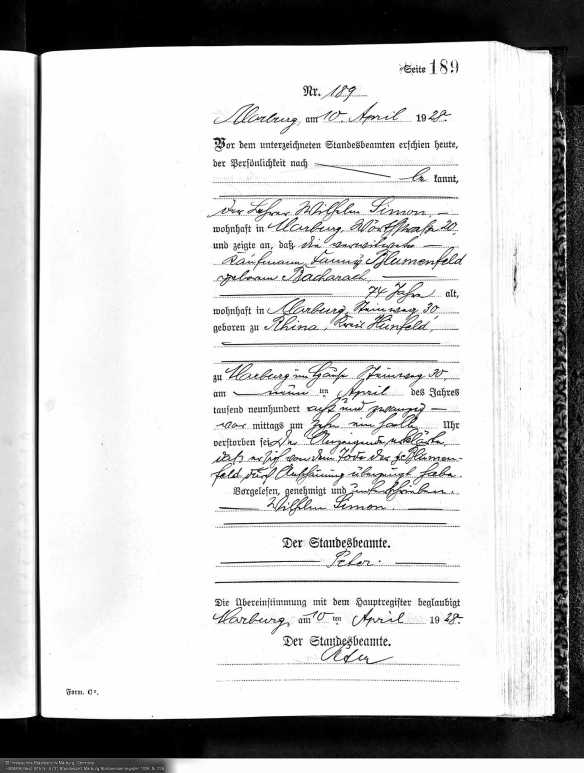 Seite 189
Nr. 189
Marburg, am 10. April 1928.
Vor dem unterzeichneten Standesbeamten erschien heute,
der Persönlichkeit nach
be kannt,
der Lehrer Wilhelm Simon,
wohnhaft in Marburg, Wörthstraße 20.
und zeigte an, daß die verwitwete
Kaufmann Fanny Blumenfeld
geborene Bacharach,
74 Jahre alt,
wohnhaft in Marburg, Steinweg 30
geboren zu Rhina, Kreis Hünfeld,
zu Marburg im Hause Steinweg 30,
am neun ten April des Jahres
tausend neunhundert acht und zwanzig
vor mittags um zehn ein halb Uhr
verstorben sei. Der Anzeigende erklärte,
daß er sich von dem Tode der p. Blumen-
feld durch Anschauung überzeugt habe.
Vorgelesen, genehmigt und unterschrieben.
Wilhelm Simon.
Der Standesbeamte.
Die Übereinstimmung mit dem Hauptregister beglaubigt
Marburg, am 10 ten April 1928.
Der Standesbeamte.
Form. C